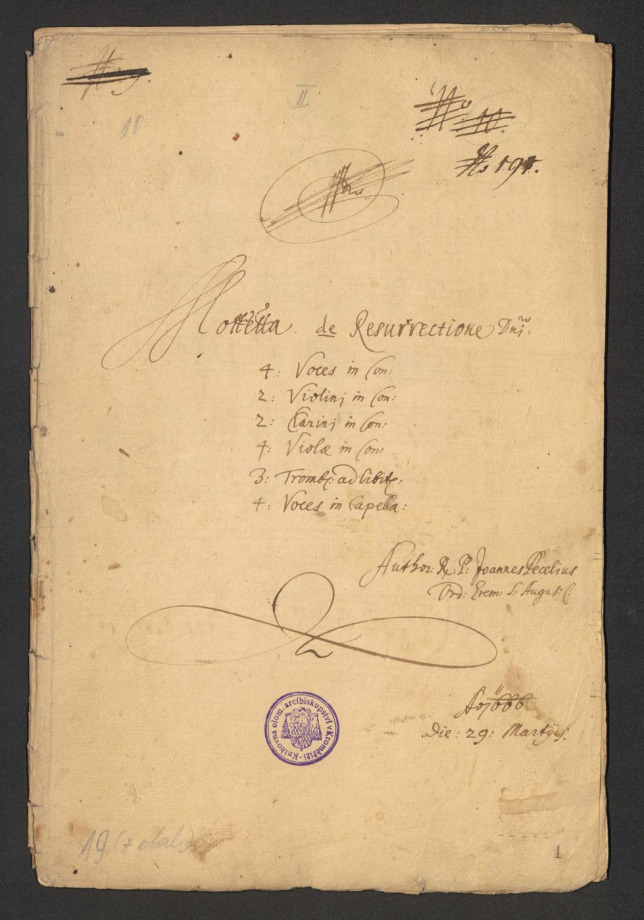 II
11
No 10.
No 191.
Mottetta de Resurrectione Dni:
4: Voces in Con:
2: Violinj in Con:
2: Clarinj in Con:
4: Violæ in Con:
3: Tromb: ad libit:
4: Voces in Capella:
Author R: P: Joannes Pecelius
Ord: Erem: S: August:
Ao 1666
Die: 29: Martij.
Knihovna olom. arcibiskupství v Kroměříži
19 (+ obal)
1